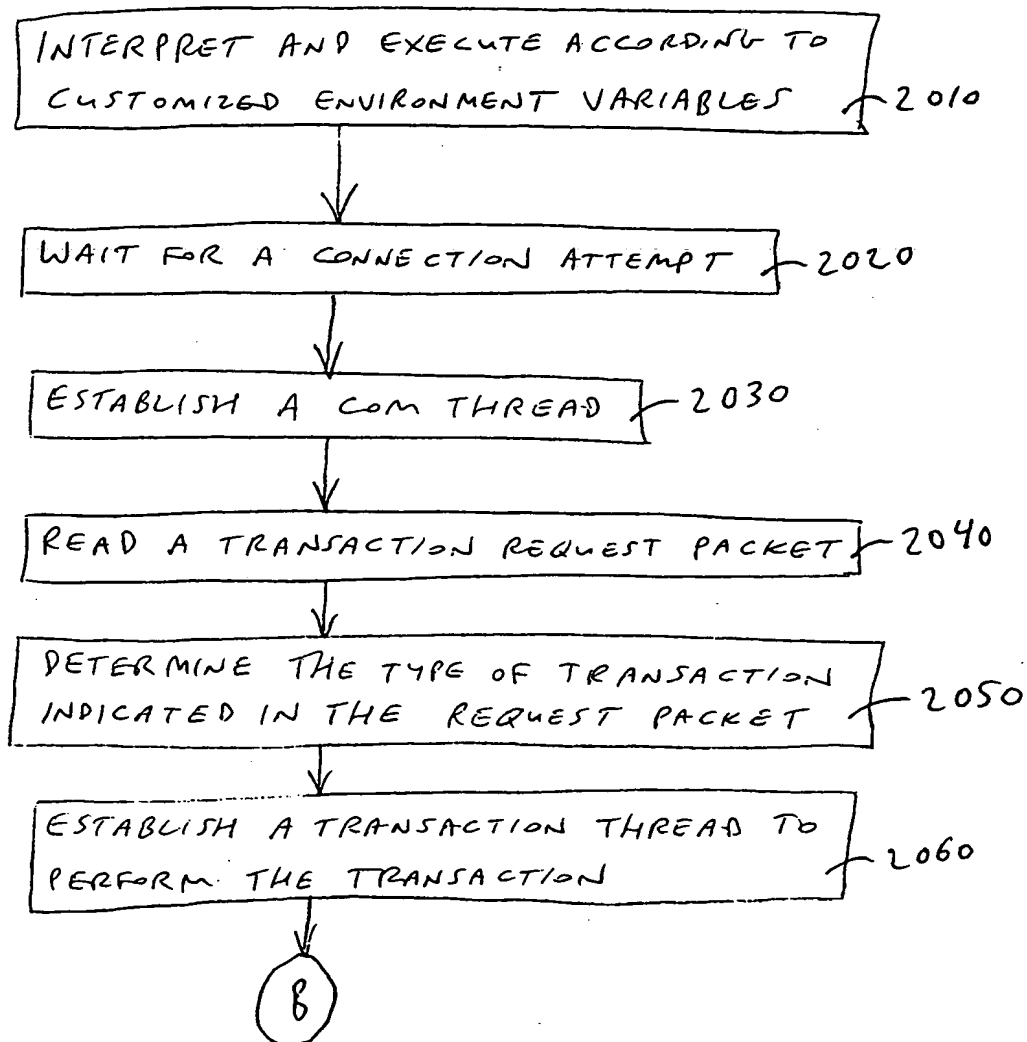 INTERPRET AND EXECUTE ACCORDING TO
CUSTOMIZED ENVIRONMENT VARIABLES
2010
WAIT FOR A CONNECTION ATTEMPT
2020
ESTABLISH A COM THREAD
2030
READ A TRANSACTION REQUEST PACKET
2040
DETERMINE THE TYPE OF TRANSACTION
INDICATED IN THE REQUEST PACKET
2050
ESTABLISH A TRANSACTION THREAD TO
PERFORM THE TRANSACTION
2060
B